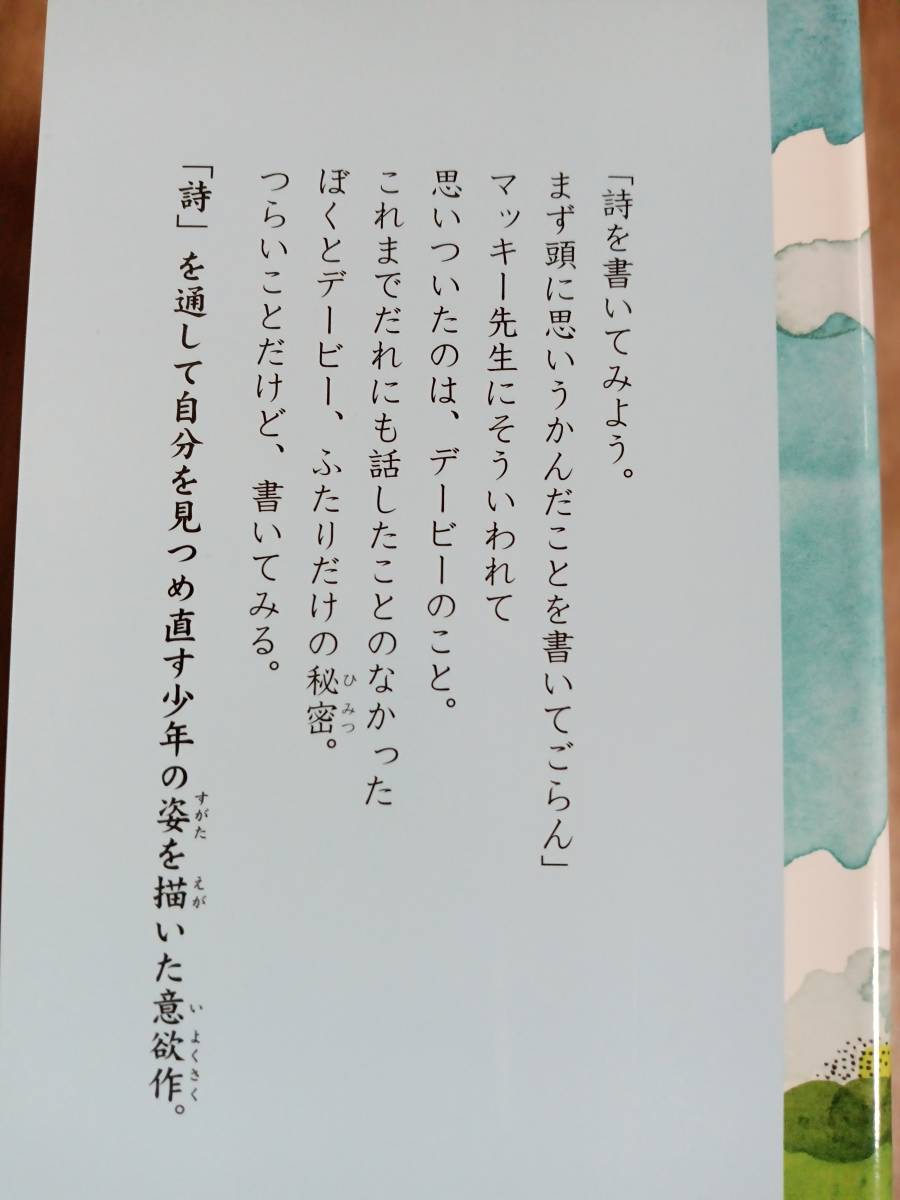 「詩を書いてみよう。
まず頭に思いうかんだことを書いてごらん」
マッキー先生にそういわれて
思いついたのは、デービーのこと。
これまでだれにも話したことのなかった
ぼくとデービー、ふたりだけの秘密。
つらいことだけど、書いてみる。
「詩」を通して自分を見つめ直す少年の姿を描いた意欲作。